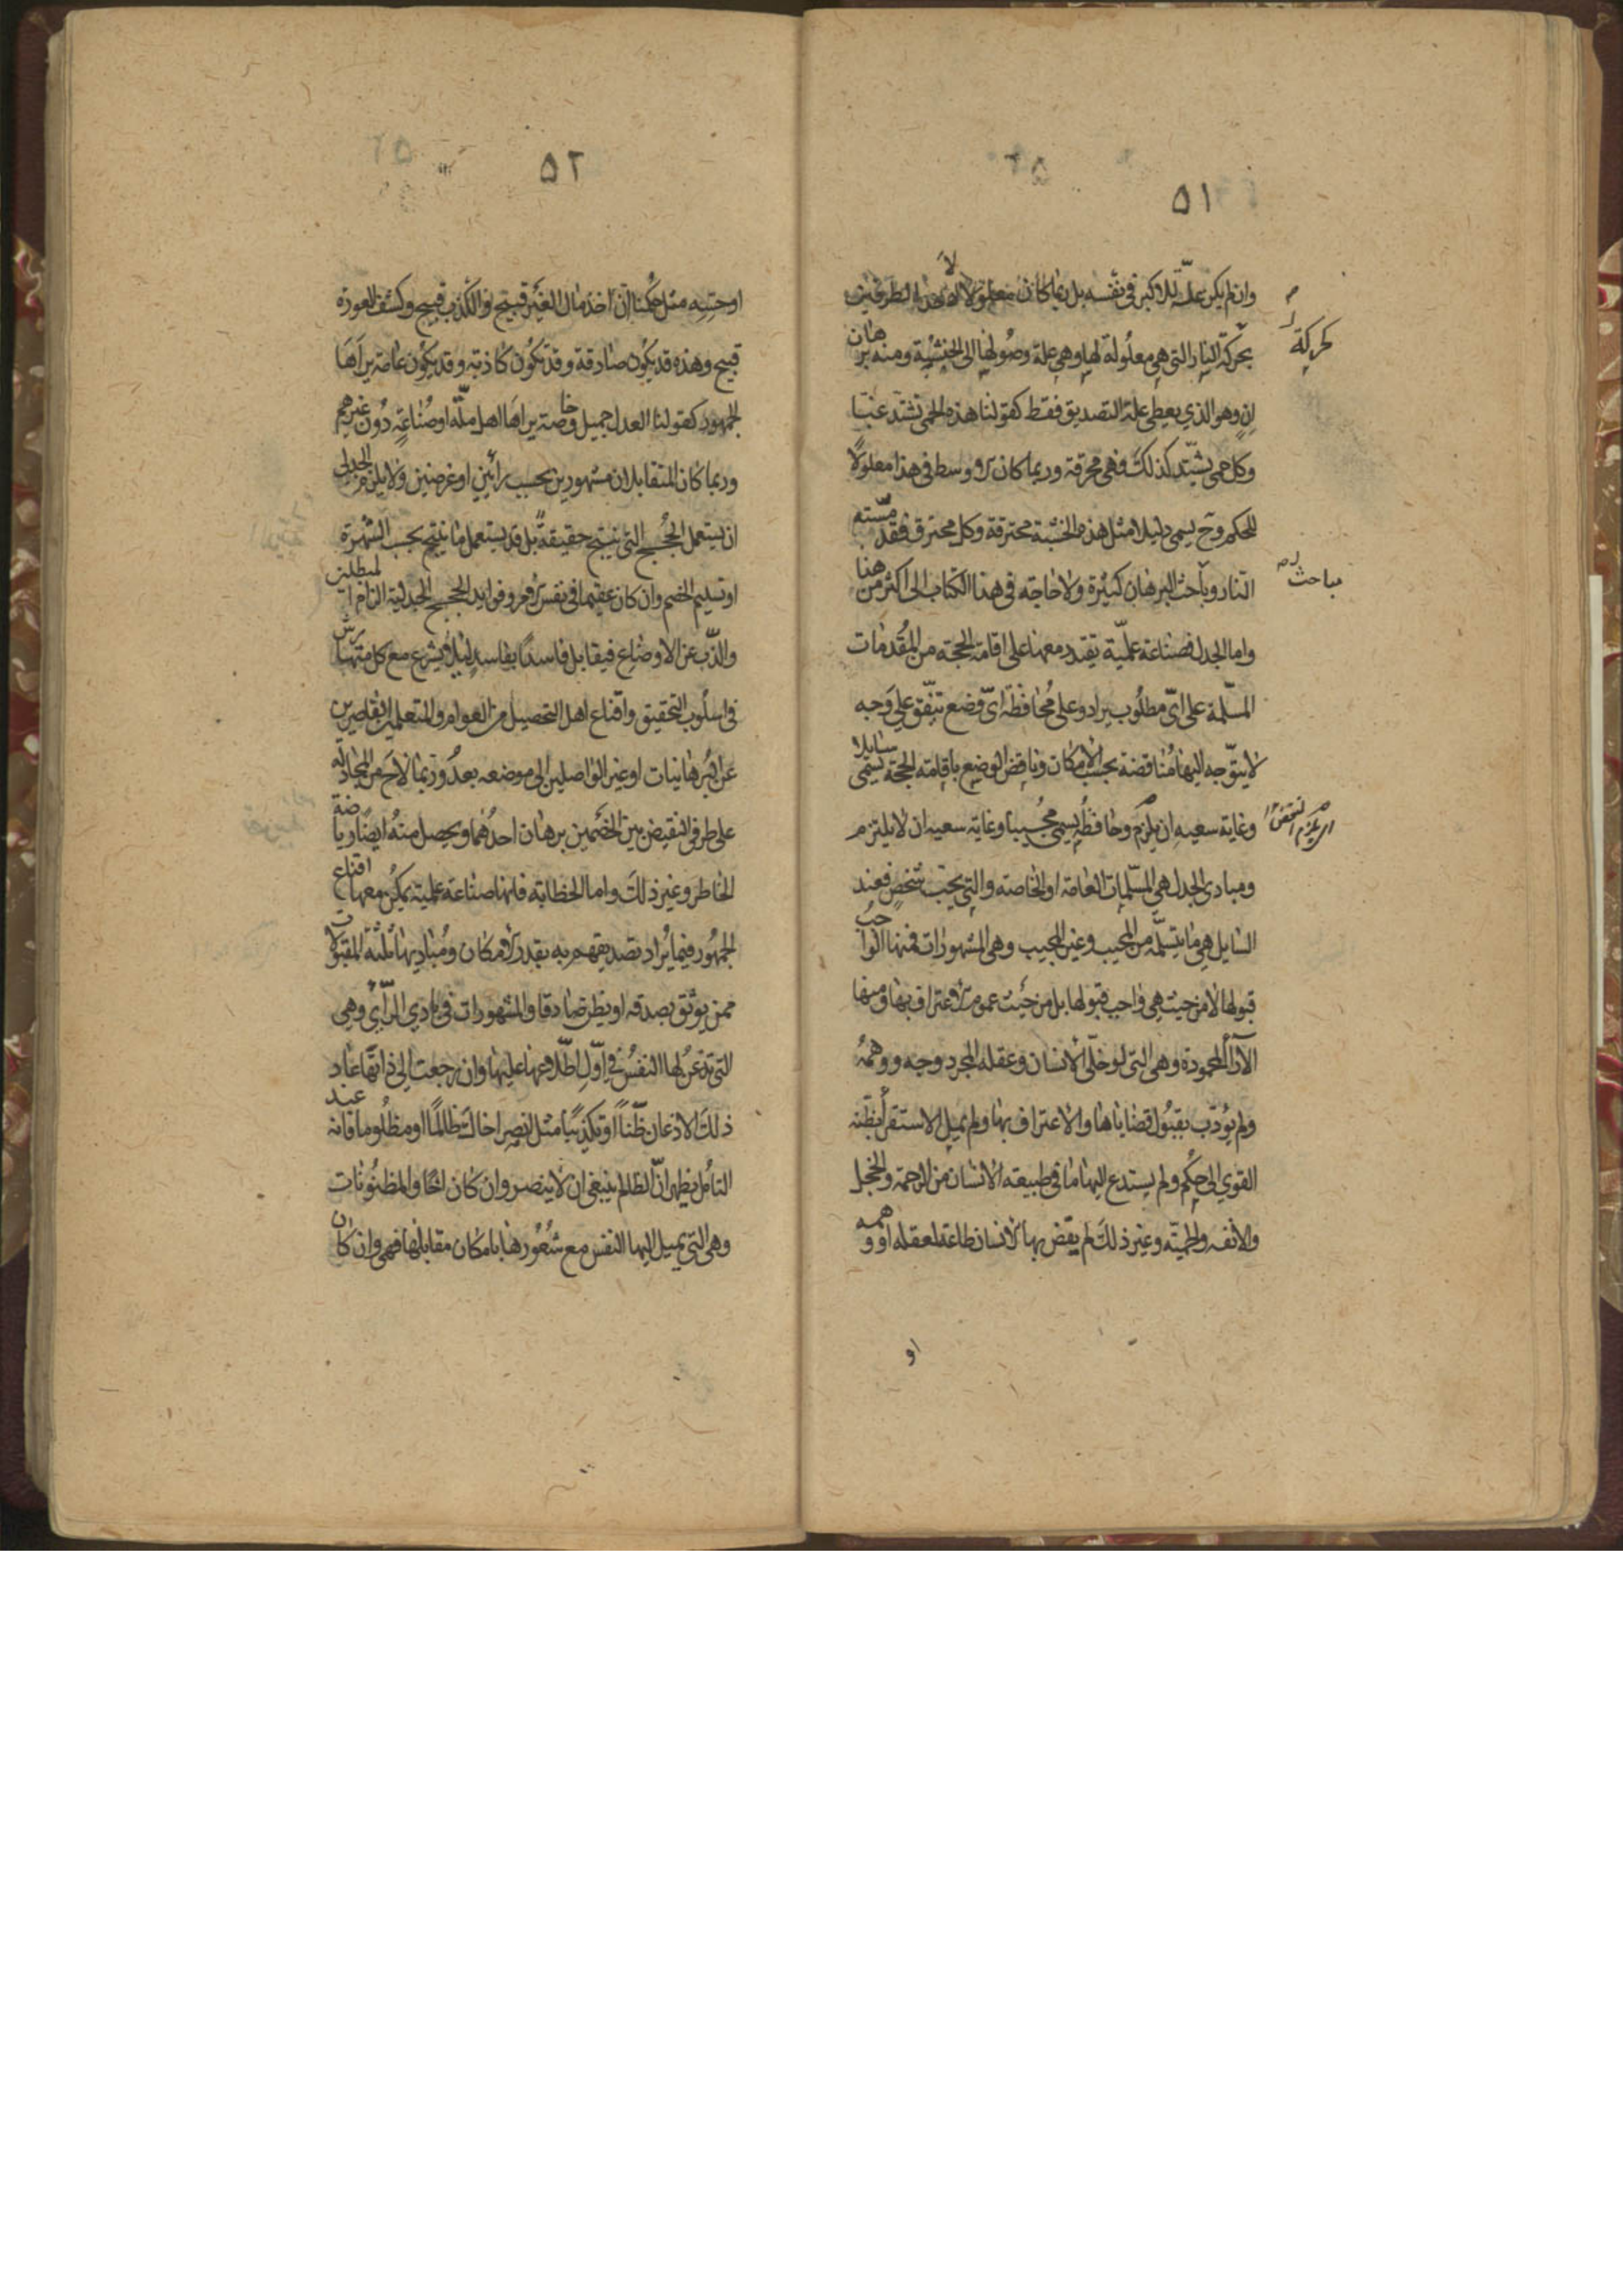 ٥١
وان لم يكن علّة للاكبر فى نفسه بل ربما كان معلولا لاحد الطرفين
بحركة النار التى هى معلولة لها وهى علة وصولها الى الخشبة ومنه برهان
ان وهو الذي يعطى علة التصديق فقط كقولنا هذه الحمى تشتد غبّا
وكل حمى يشتد كذلك فهى محرقة وربما كان الاوسط فى هذا معلولاً
للحكم وح يسمى دليلا مثل هذه الخشبة محترقة وكل محترق فقد مسّته
النار وباحث البرهان كثيرة ولا حاجة فى هذا الكتاب الى اكثر من هنا
واما الجدل فصناعة علميّة يقتدر معها على اقامة الحجة من المُقدمات
المسلّمة على اىّ مطلُوب يراد وعلى مُحافظة اىّ وضع يتفق على وجه
لا يتوجه اليها مُناقضة بحسب الامكان وناقض الوضع باقامة الحجة يسمى سايلا
وغاية سعيه ان يلزم وحافظه يسمى مُجيبا وغاية سعيه ان لا يلتزم
ومبادى الجدل هى المسلّمات العامة او الخاصة والتى يحب شخص فعند
السايل هى ما يتسلّمه من المجيب وعند المجيب وهى المشهورات فمنها الواجب
قبولها لا من حيث هى واجب قبولها بل من حيث عموم الاعتراف بها ومنها
الآرآ المحمودة وهى التى لو خلّى الانسان وعقله المجرد وجه ووهمه
ولم يؤدب بقبُول قضاياها والاعتراف بها ولم يميل الاستقرأ بظنه
القوي الى حكم ولم يستدع اليها ما فى طبيعة الانسان من الرحمة والخجل
والانفه والحميّه وغير ذلك لم يقض بها الانسان طاعة لعقله او وهمه
او
لحركة
مباحث
٥٢
او حسّه مثل حُكمنا انّ اخذ مال الغير قبيح او الكذب قبيح وكشف العورة
قبيح وهذه قد يكون صادقة وقد تكون كاذبة وقد يكون عامة يراها
الجمهور كقولنا العدل جميل وخاصة يراها اهل ملّه او صُناعة دُون غيرهم
وربما كان المتقابلان مشهورين بحسب رائين او غرضين ولا يلزم الجدلى
ان يستعمل الحُجج التى ينتج حقيقةً بل قد يستعمل ما ينتج بحب الشهرة
او تسليم الخصم وان كان عقيما فى نفس الامر وفوايد الحجج الجدلية الزام المبطلين
والذّب عن الاوضاع فيقابل فاسدًا بفاسد ليلا يشرع مع كل متهارش
فى اسلُوب التحقيق واقناع اهل التحصيل من العوام والمتعلمين القاصرين
عن البرهانيات او غير الواصلين الى موضعه بعدُ وربما لاح من المجادله
على طرفى النقيض بين الخصمين برهان احدُهما ويحصل منهُ ايضًا رياضة
الخاطر وغير ذلك واما الخطابة فانها صناعة علمية يمكن معها اقناع
الجمهُور فيما يُراد تصديقهم به بقدر الامكان ومُباديها ثلثة المقبولات
ممن يوثق بصدقه او يظن صادقا والمشهورات فى بادي الرّأي وهى
التى تذعن لها النفسُ فى اوّل اطّلاعها عليها وان رجعت الى ذاتها عاد
ذلك الاذعان ظّناً او تكذيبًا مثل انصر اخاك ظالمًا او مظلُوما فانه عند
التأمل يظهر انّ الظالم ينبغى ان لا ينصر وان كان اخًا والمظنُونات
وهى التى يميل اليها النفس مع شُعُورها بامكان مقابلها فهى وان كان